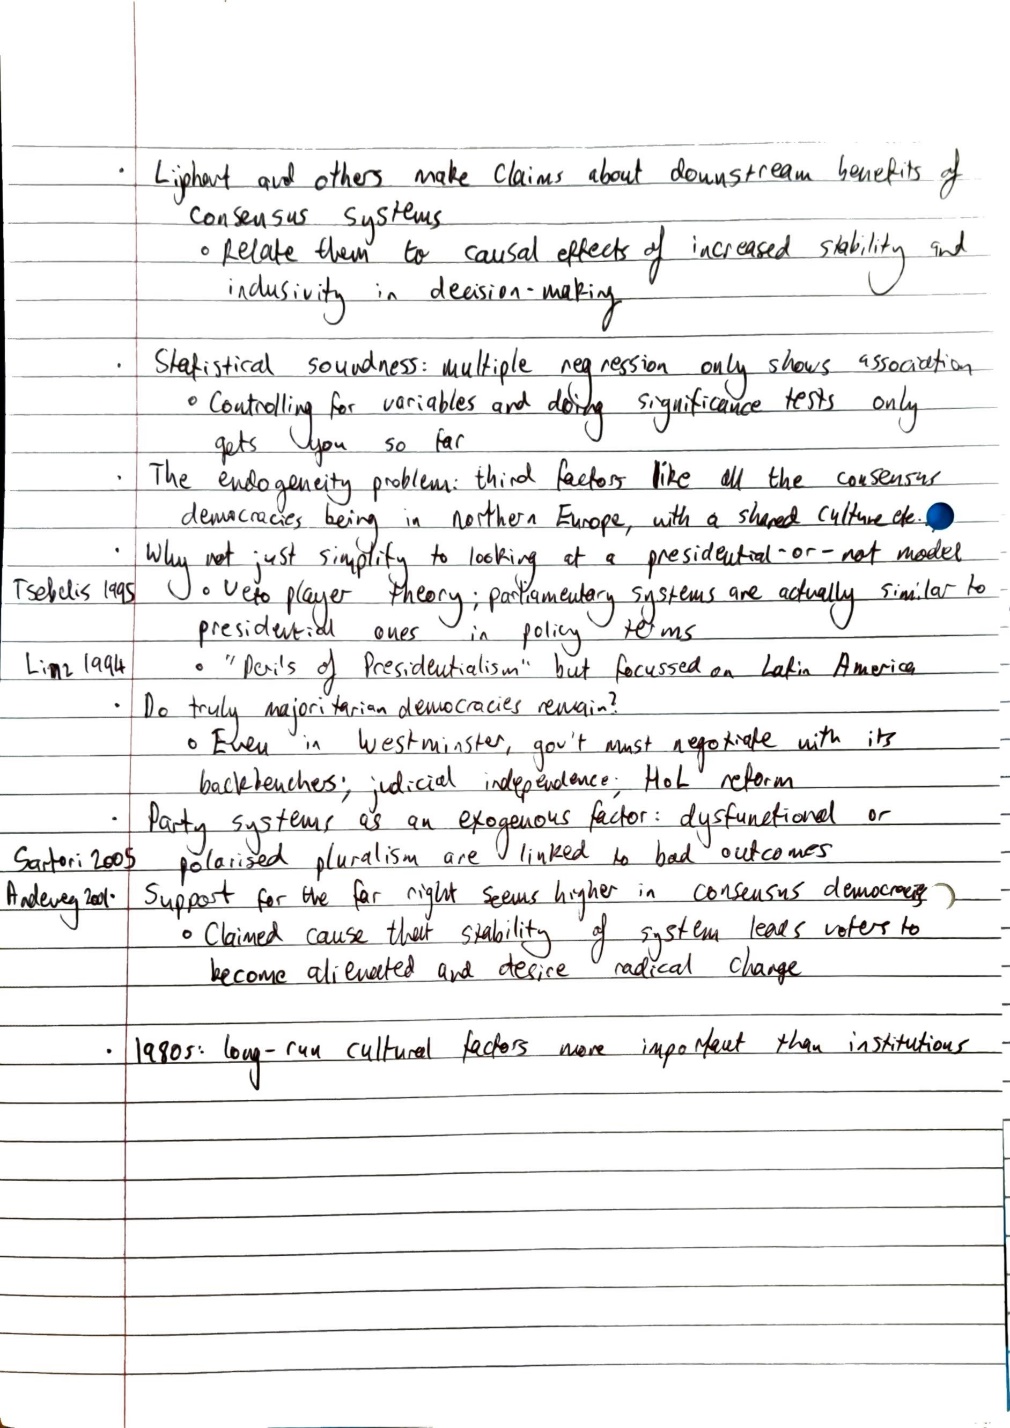 · Lijphart and others make claims about downstream benefits of
consensus systems
o Relate them to causal effects of increased stability and
inclusivity in decision-making
· Statistical soundness: multiple regression only shows association
o Controlling for variables and doing significance tests only
gets you so far
· The endogeneity problem: third factors like all the consensus
democracies being in northern Europe, with a shared culture etc.
· Why not just simplify to looking at a presidential-or-not model
Tsebelis 1995 o Veto player theory; parliamentary systems are actually similar to
presidential ones in policy terms
Linz 1994 o "Perils of Presidentialism" but focussed on Latin America
· Do truly majoritarian democracies remain?
o Even in Westminster, gov't must negotiate with its
backbenchers; judicial independence; HoL reform
· Party systems as an exogenous factor: dysfunctional or
Sartori 2005 polarised pluralism are linked to bad outcomes
Andeweg 2001 · Support for the far right seems higher in consensus democracies
o Claimed cause that stability of system leads voters to
become alienated and desire radical change
· 1980s: long-run cultural factors more important than institutions